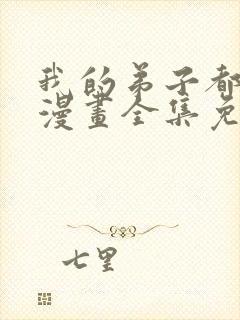 我的弟子都
漫畫全集免
七里